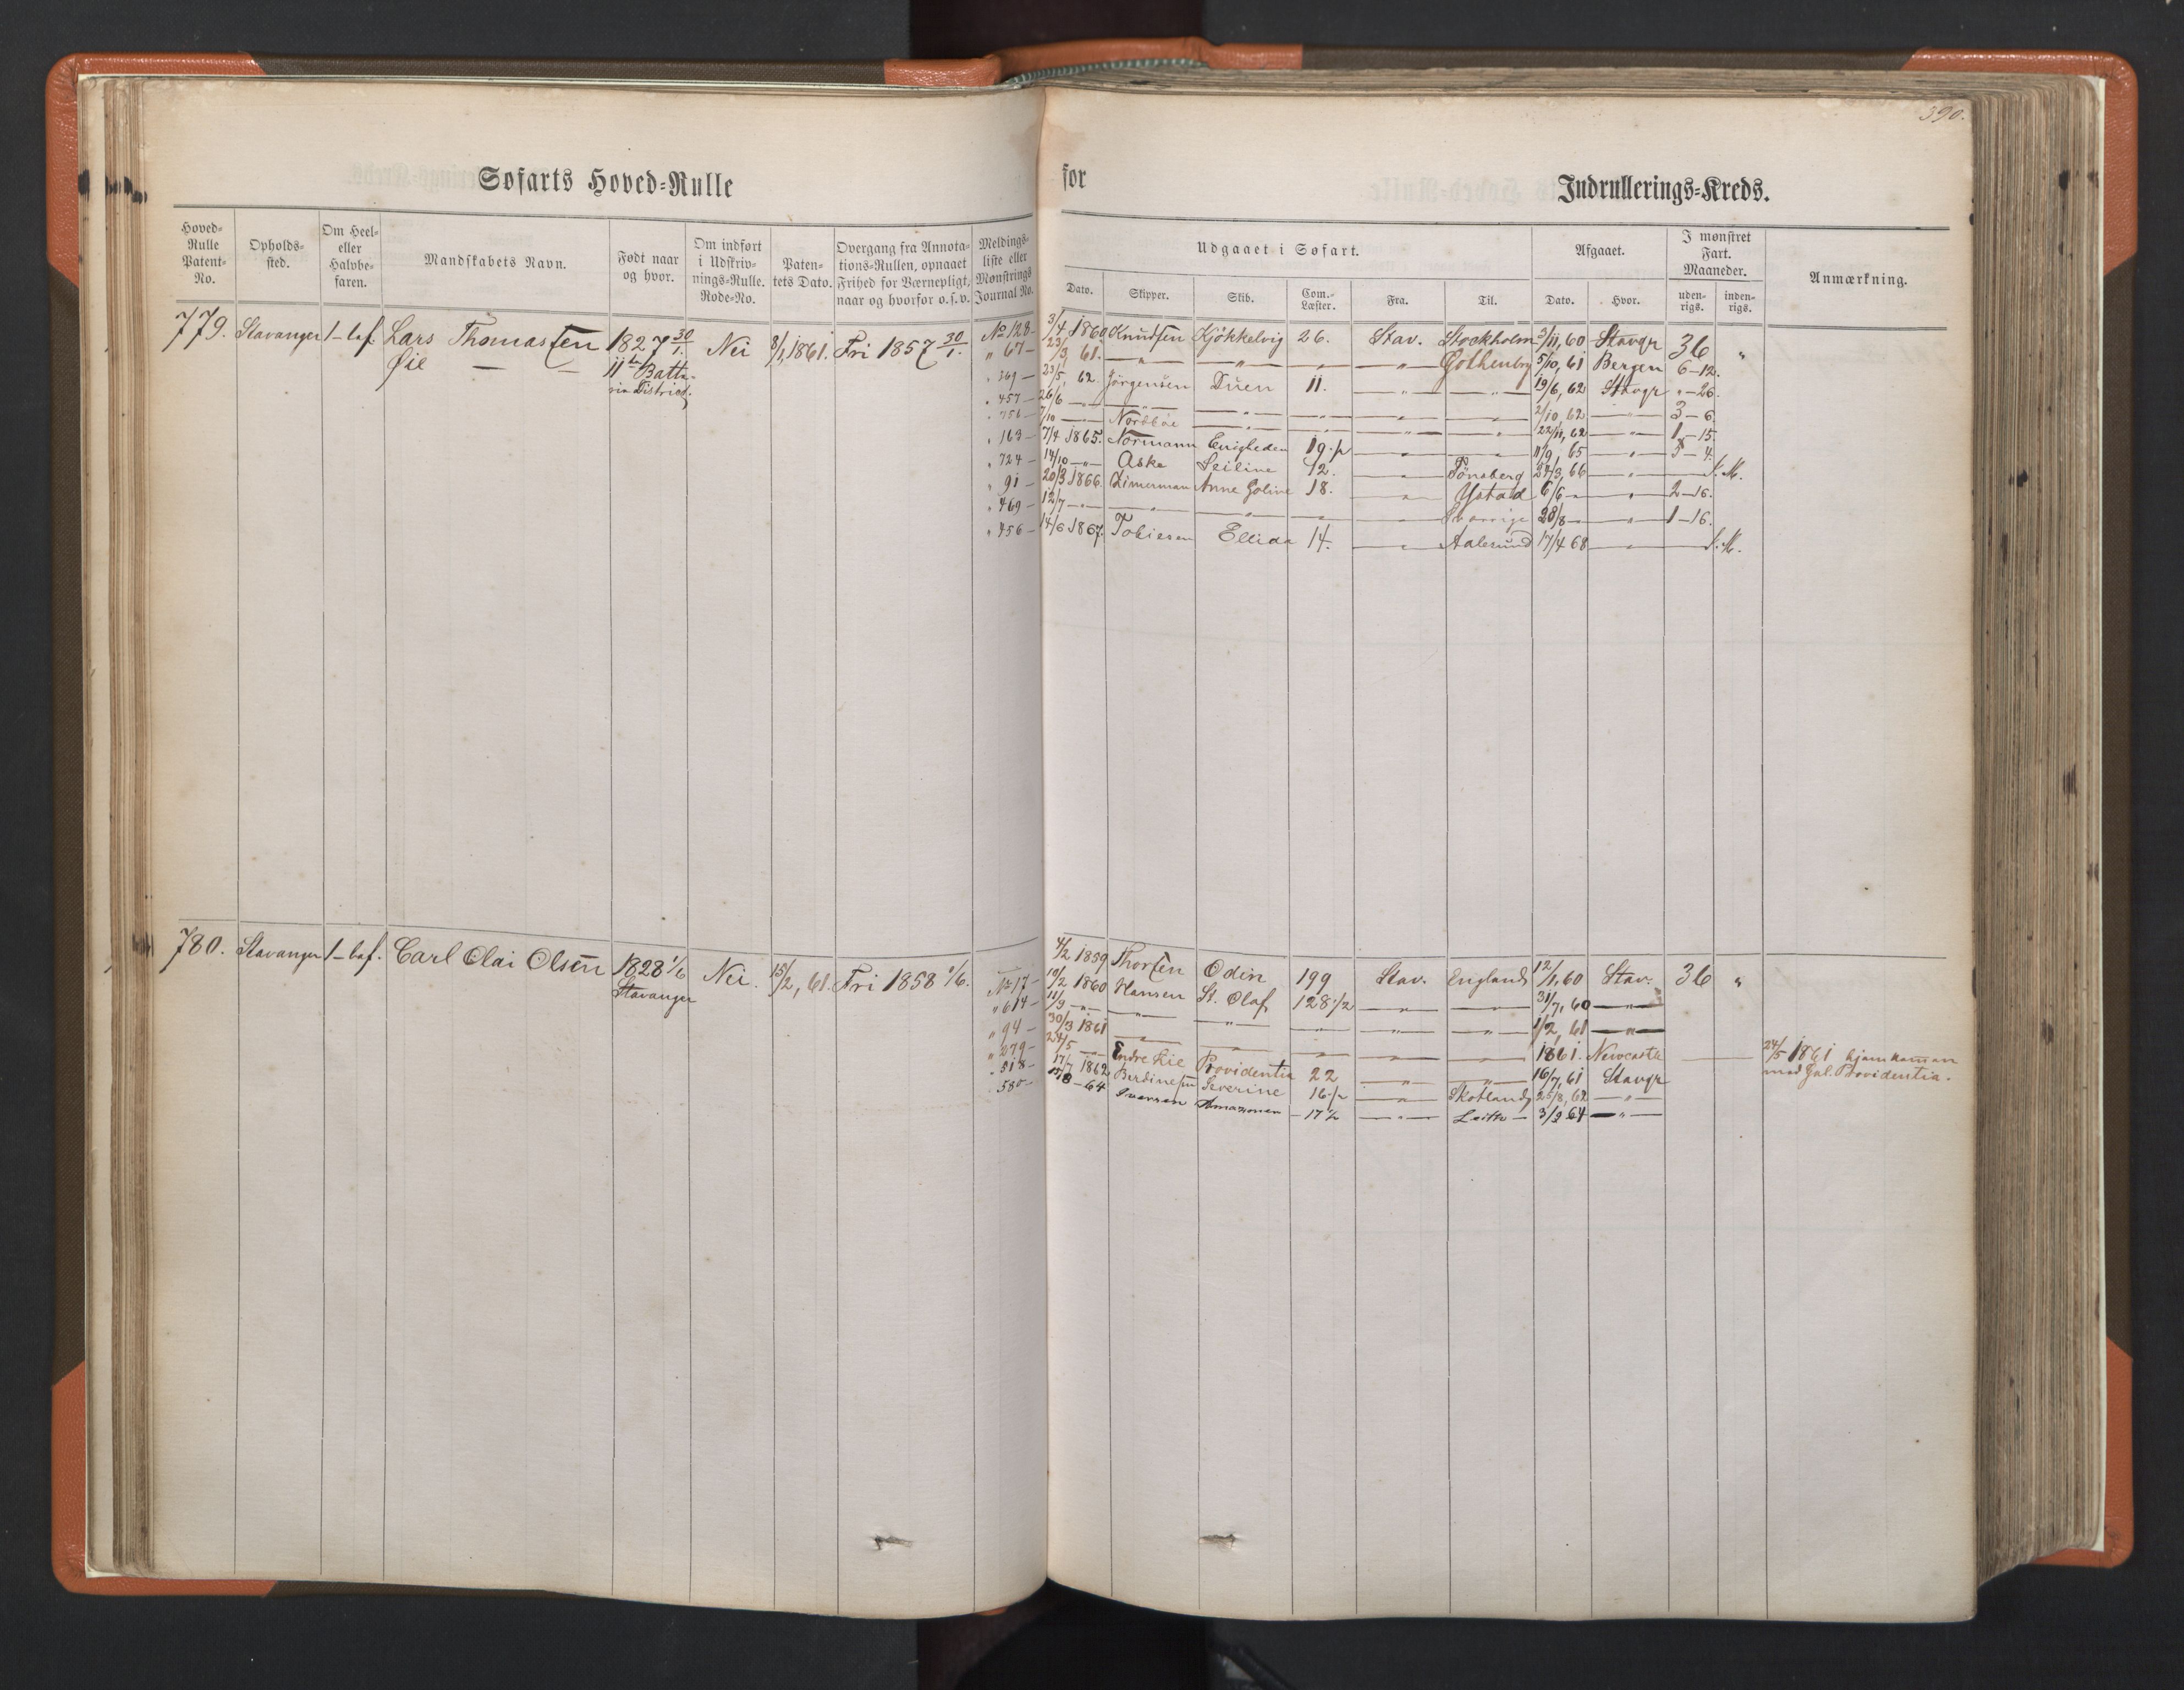 390.
Søfarts Hoved-Rulle for Indrullerings-Kreds.
Hoved-Rulle Patent-No.
Opholds-sted.
Om Heel- eller Halvbe-faren.
Mandskabets Navn.
Født naar og hvor.
Om indført i Udskriv-nings-Rulle. Rode-No.
Paten-tets Dato.
Overgang fra Annota-tions-Rullen, opnaaet Frihed for Værnepligt, naar og hvorfor o. s. v.
Meldings-liste eller Mønstrings Journal No.
Udgaaet i Søfart.
Dato. Skipper. Skib. Com.-Læster. Fra. Til.
Afgaaet.
Dato. Hvor.
I mønstret Fart. Maaneder.
uden-rigs. inden-rigs.
Anmærkning.
779. Stavanger 1-bef. Lars Thomassen 1827 30/1. Nei 8/1, 1861. Fri 1857 30/1.
Øie — — 11te Batte-
rie District.
No 128 - 3/4 1860 Knudsen Kjökkelvig 26. Stav. Stockholm 3/11, 60 Stavgr 36 "
" 67 - 23/3 61. — " — — " — — " — — " — Gothenbrg 5/10, 61 Bergen 6-12.
" 369 - 23/5, 62. Jörgensen Duen 11. — " — — " — 19/6, 62 Stavgr "-26.
" 457 - 26/6 — " — — " — — " — — " — — " — — " — 2/10, 62 — " — 3-6.
" 756 - 7/10 — " — Nordbøe — " — — " — — " — — " — 22/11, 62 — " — 1-15.
" 163 - 7/4 1865. Normann Enigheden 19 1/2 — " — — " — 11/9, 65 — " — 5-4.
" 724 - 14/10 — " — Aske Seiline 12. — " — Tönsberg 24/3, 66 — " — S.M.
" 91 - 20/3 1866. Zimerman Anne Goline 18. — " — Ystad 6/6 - — " — 2-16.
" 469 - 12/7 — " — — " — — " — — " — — " — Sverrige 28/8 - — " — 1-16.
" 456 - 14/6 1867. Tobiesen Ellida 14. — " — Aalesund 17/4 68 — " — S.M.
780. Stavanger 1-bef. Carl Olai Olsen 1828 1/6 Nei. 15/2, 61. Fri 1858 1/6.
Stavanger
4/2 1859 Thorsen Odin 199 Stav. England 12/1, 60 Stav. 36 "
No 17 - 10/2 1860 Hansen St. Olaf 128 1/2 — " — — " — 31/7, 60 — " —
" 614 - 11/9 — " — — " — — " — — " — — " — — " — 1/2, 61 — " —
" 94 - 30/3 1861 — " — — " — — " — — " — — " — 1861. Newcastle — 24/5 1861 hjemkommen
med Gal. Providentia.
" 279 - 24/5 — " — Endre Lie Providentia 22 — " — — " — 16/7, 61 Stavgr
" 518 - 17/7 1862 Berdinesen Severine 16 1/2 — " — Skotland 25/8, 62 — " —
" 580 - 15/8 - 64 Iversen Amazonen - 17 1/2 — " — Leith - 3/9 64 — " —